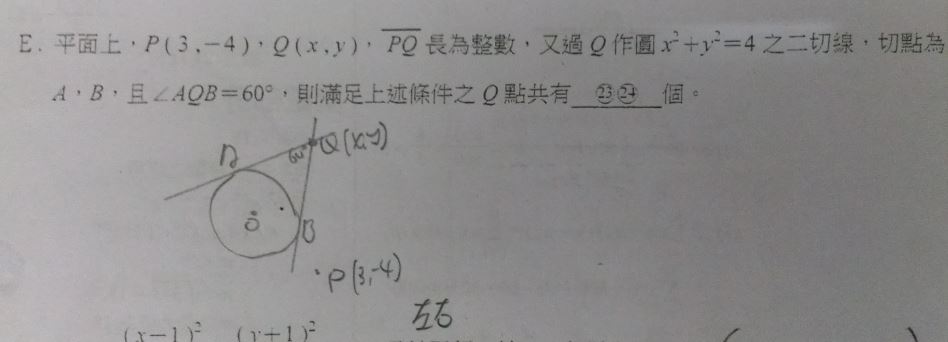 E. 平面上，P(3,-4)，Q(x,y)，\overline{PQ} 長為整數，又過 Q 作圓 x²+y²=4 之二切線，切點為
A，B，且∠AQB=60°，則滿足上述條件之 Q 點共有 ㉓㉔ 個。
A
60°
Q(x,y)
O
B
P(3,-4)
左右
(x-1)² (y+1)²